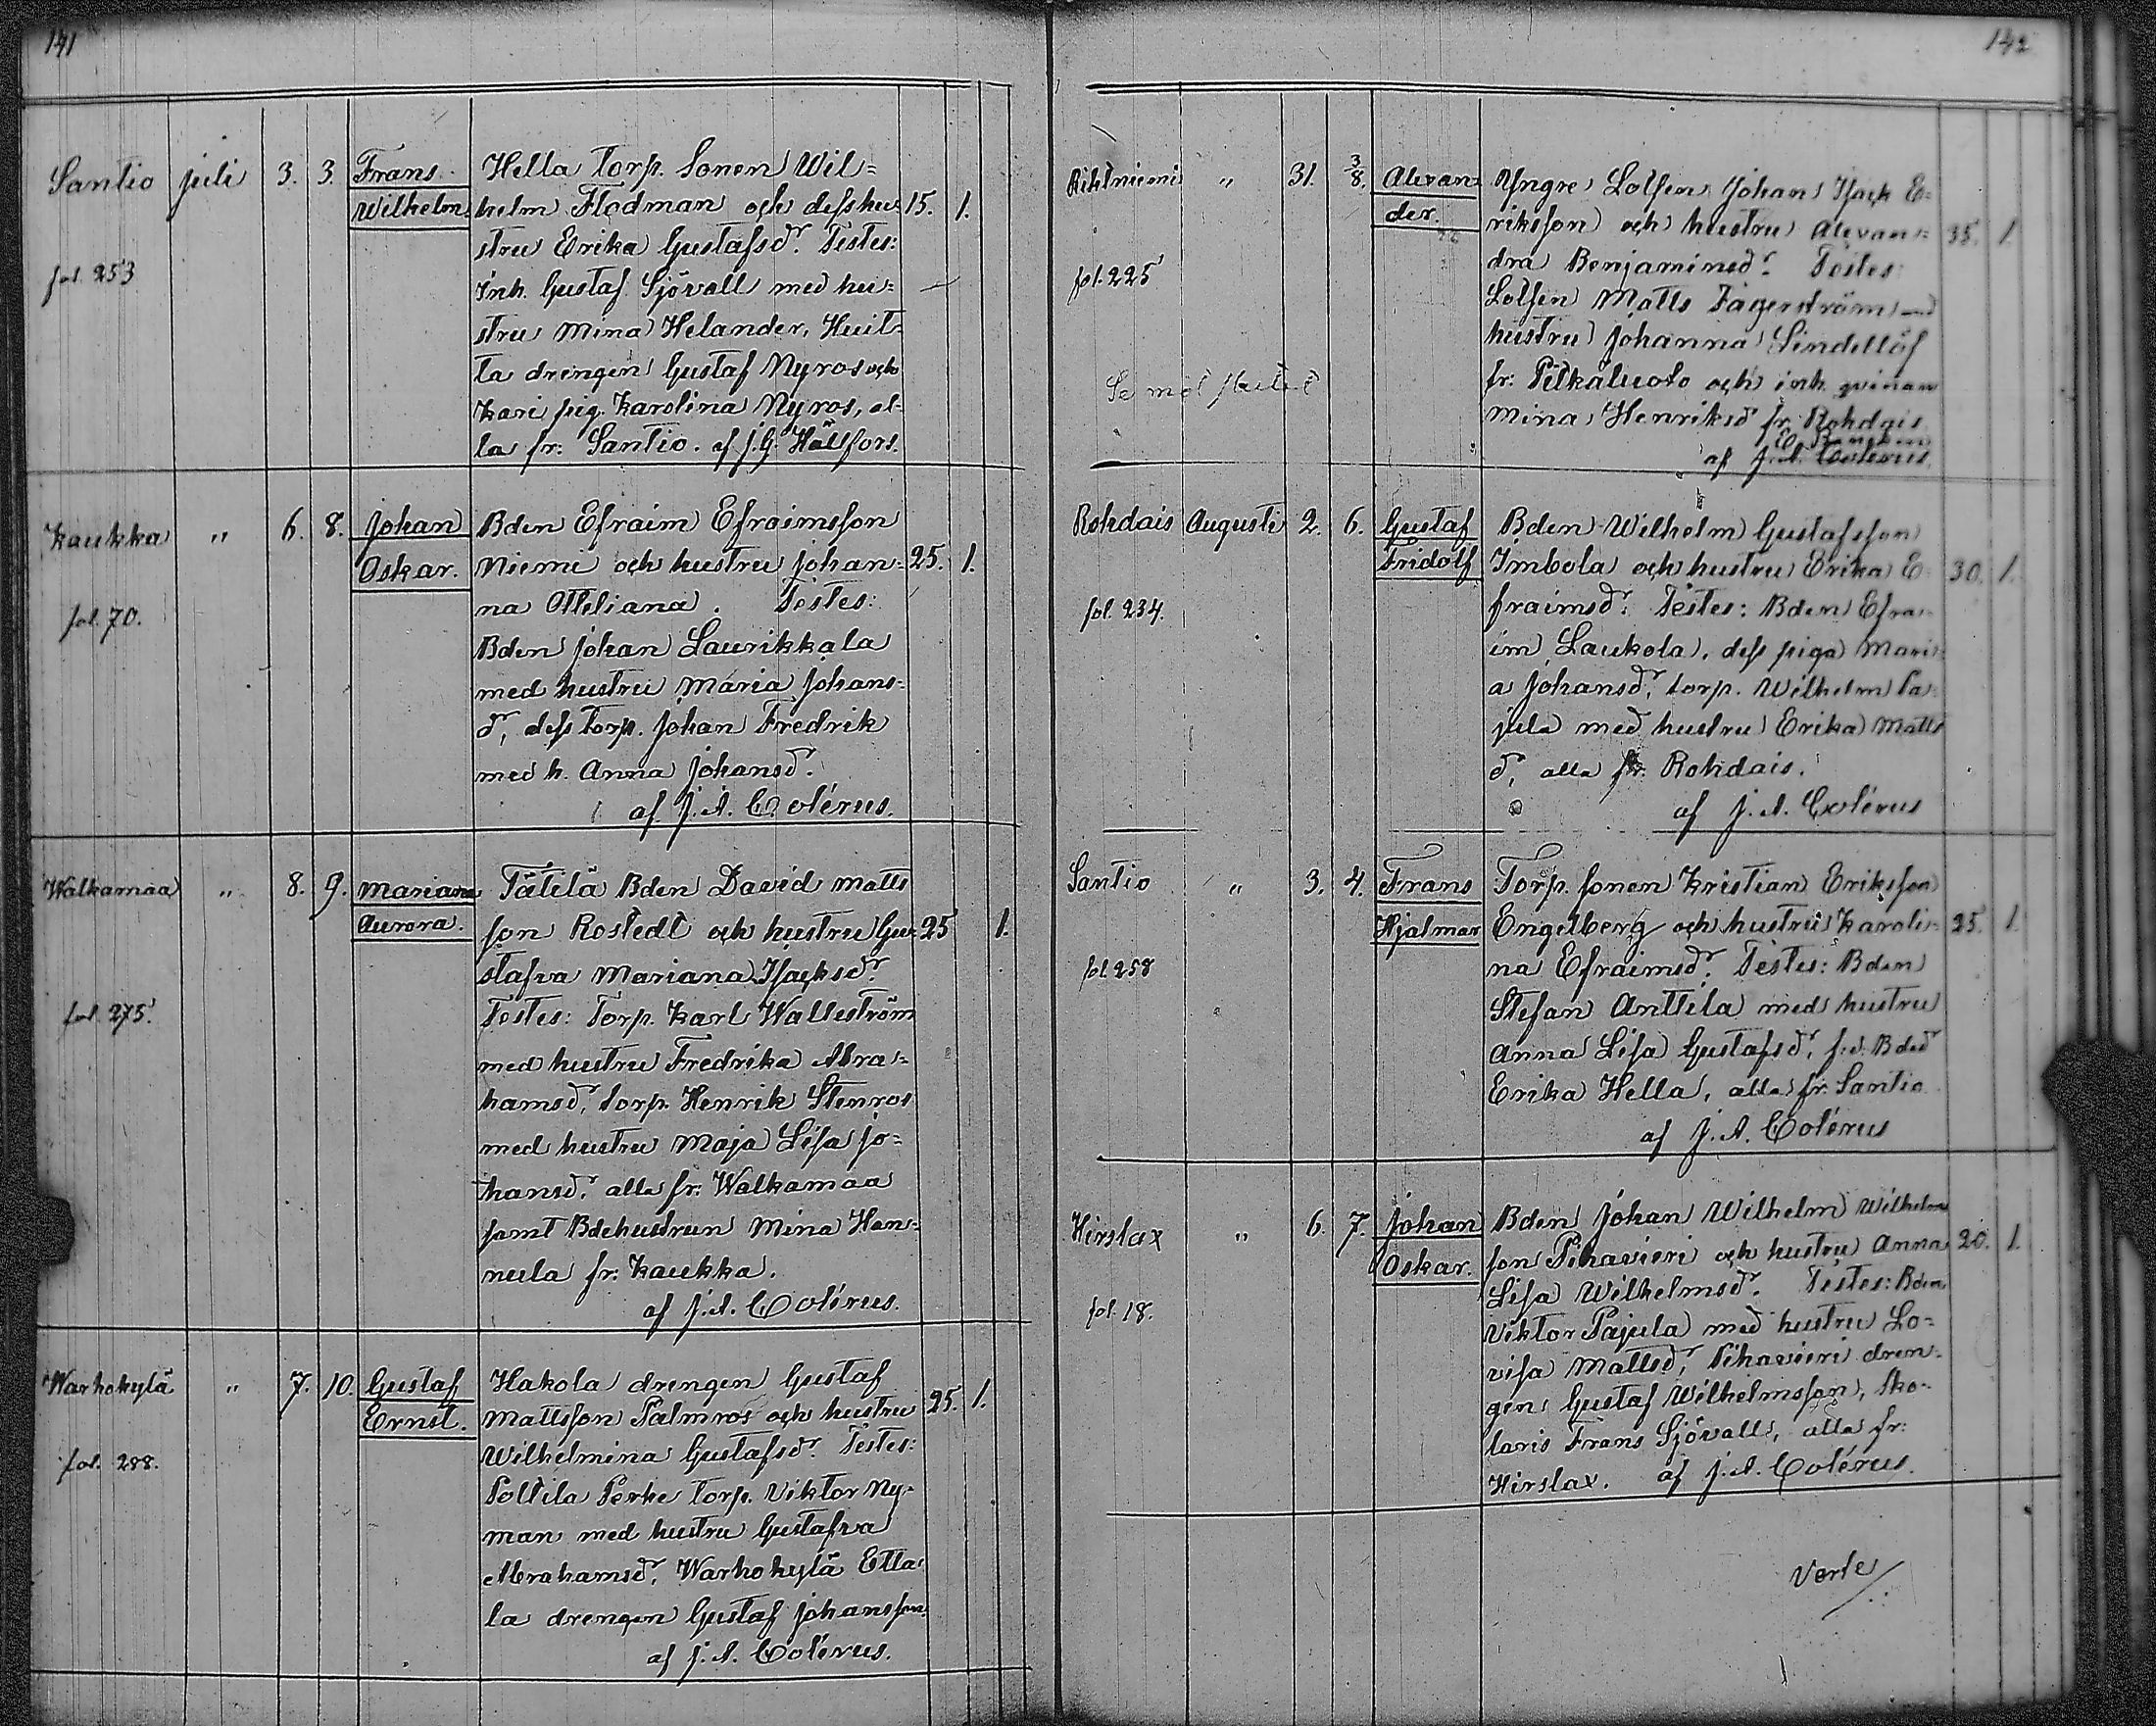 141
Santio juli 3. 3. Frans Hella torp. Sonen Wil=
Wilhelm. helm Flodman och dess hu= 15. 1.
stru Erika Gustafsdr. Testes:
fol. 253 Inh. Gustaf Sjövall med hu=
stru Mina Helander, Huit=
ta drengen Gustaf Nyros och
Kari pig. Karolina Nyros, al=
la fr: Santio. af J. G. Hällfors.
Kaukka " 6. 8. Johan Bden Efraim Efraimsson
Oskar. Niemi och hustru Johan= 25. 1.
na Otteliana. Testes:
fol. 70. Bden Johan Laurikkala
med hustru Maria Johans=
dr, dess torp. Johan Fredrik
med h. Anna Johansdr.
af J. A. Colérus.
Walkamaa " 8. 9. Mariana Tätilä Bden David Matts
Aurora. son Rostedt och hustru Gu= 25 1.
stafva Mariana Isacksdr.
fol. 275. Testes: Torp. Karl Walleström
med hustru Fredrika Abra=
hamsdr, torp. Henrik Stenros
med hustru Maja Lisa Jo=
hansdr, alla fr: Walkamaa
samt Bdehustrun Mina Han=
nula fr: Kaukka.
af J. A. Colérus.
Warhokylä " 7. 10. Gustaf Hakola drengen Gustaf
Ernst. Mattsson Palmros och hustru 25. 1.
Wilhelmina Gustafsdr. Testes:
fol. 288. Poltila Perhe torp. Viktor Ny=
man med hustru Gustafva
Abrahamsdr, Warhokylä Etta=
la drengen Gustaf Johansson.
af J. A. Colérus.
142
Rihtniemi " 31. 3/8. Alexan= Yngre Lotsen Johan Isack E=
der. riksson och hustru Alexan= 35. 1.
dra Benjaminsdr. Testes:
fol. 225 Lotsen Matts Fagerström
hustru Johanna Lindellöf
fr: Pitkäluoto och inh. qvinan
Mina Henriksdr fr Rohdais
af J. A. Colérus
Rohdais Augusti 2. 6. Gustaf Bden Wilhelm Gustafsson
Fridolf Imbola och hustru Erika E= 30. 1.
fraimsdr. Testes: Bden Efra=
fol. 234. im Laukola, dess piga Mari=
a Johansdr, torp. Wilhelm Pa=
jula med hustru Erika Matts
dr, alla fr. Rohdais.
af J. A. Colérus
Santio " 3. 4. Frans Torp. sonen Kristian Eriksson
Hjalmar Engelberg och hustru Karoli= 25. 1.
fol. 258 na Efraimsdr. Testes: Bden
Stefan Anttila med hustru
Anna Lisa Gustafsdr, f.d. Bdedr
Erika Hella, alla fr. Santio
af J. A. Colérus
Hirslax " 6. 7. Johan Bden Johan Wilhelm Wilhelm
Oskar. son Pihavieri och hustru Anna 20. 1.
Lisa Wilhelmsdr. Testes: Bden
fol. 18. Viktor Pajula med hustru Lo=
visa Mattsdr, Pihavieri dren=
gen Gustaf Wilhelmsson, Sko=
laris Frans Sjövall, alla fr:
Hirslax. af J. A. Colérus.
Verte